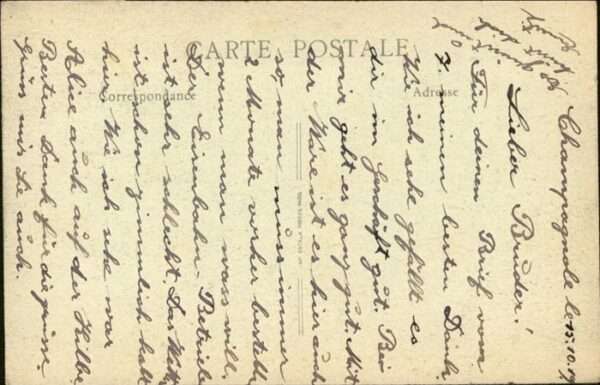 CARTE POSTALE
Correspondance
Adresse
Champagnole le 15.10.19
Lieber Bruder!
Für deinen Brief vom
7. meinen besten Dank.
Wie ich sehe gefällt es
dir im Geschäft gut. Bei
mir geht es ganz gut. Mit
der Ware ist es hier auch
so man muss immer
2 Monate vorher bestell
wenn man wass will.
Der Eisenbahn-Betrieb
ist sehr schlecht. Das Wett
ist schon ziemlich kalt
hier. Wie ich sehe war
Alice auch auf der
Besten Dank für die grüsse.
Grüss mir Sie auch.